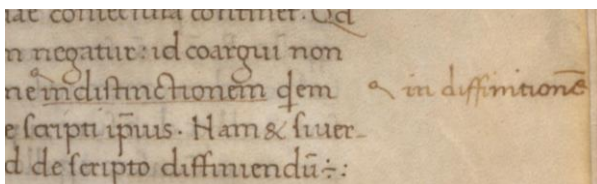 tae coniectura continet. Qd
n negatur: id coargui non
ne indistinctionem qem
in diffinitionē
e scripti ip̄ius. Nam & siuer-
d de scripto diffiniendū÷: